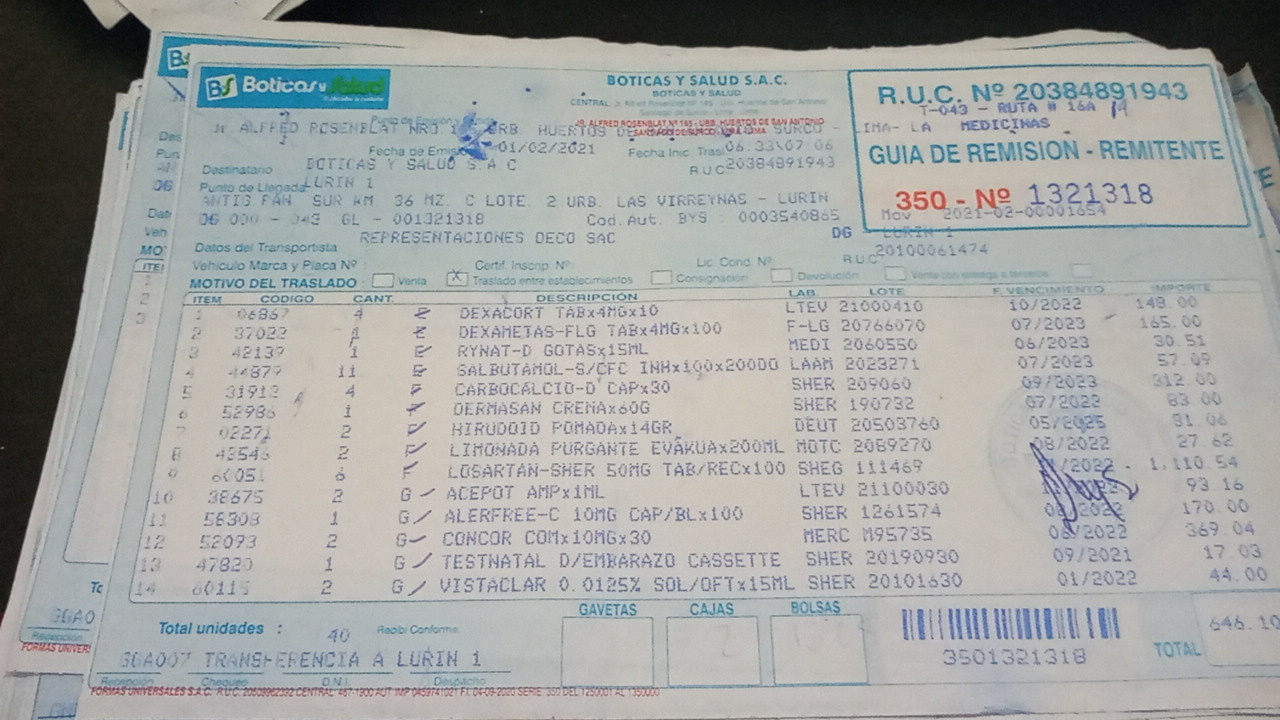 BS Boticas y Salud
BOTICAS Y SALUD S.A.C.
BOTICAS Y SALUD
R.U.C. Nº 20384891943
T-043 - RUTA # 16A
LIMA- LA MEDICINAS
GUIA DE REMISION - REMITENTE
350 - Nº 1321318
Mov 2021-02-00001654
JR. ALFRED ROSENBLAT Nº 165 - URB. HUERTOS DE SAN ANTONIO
Jr. ALFRED ROSENBLAT NRO. URB. HUERTOS DE SURCO -
Fecha de Emisión 01/02/2021 Fecha Inic. Tras 06:33\07:06
Destinatario BOTICAS Y SALUD S.A.C R.U.C 20384891943
Punto de Llegada LURIN 1
ANTIG PAN. SUR KM. 36 MZ. C LOTE. 2 URB. LAS VIRREYNAS - LURIN
DG 000 - 043 GL - 001321318 Cod.Aut. BYS : 0003540865 DG LURIN 1
Datos del Transportista REPRESENTACIONES DECO SAC R.U.C 20100061474
Vehículo Marca y Placa Nº : Certif. Inscrip. Nº Lic Cond. Nº
MOTIVO DEL TRASLADO Venta X Traslado entre establecimientos Consignación Devolución Venta con entrega a terceros
ITEM CÓDIGO CANT. DESCRIPCIÓN LAB. LOTE F. VENCIMIENTO IMPORTE
1 06867 4 DEXACORT TABx4MGx10 LTEV 21000410 10/2022 148.00
2 37022 1 DEXAMETAS-FLG TABx4MGx100 F-LG 20766070 07/2023 165.00
3 42139 1 RYNAT-D GOTASx15ML MEDI 2060550 06/2023 30.51
4 44879 11 SALBUTAMOL-S/CFC INHx100x200DO LAAM 2023271 07/2023 57.09
5 31912 4 CARBOCALCIO-D CAPx30 SHER 209060 09/2023 312.00
6 52986 1 DERMASAN CREMAx60G SHER 190732 07/2022 83.00
7 02271 2 HIRUDOID POMADAx14GR DEUT 20503760 05/2025 81.06
8 43546 2 LIMONADA PURGANTE EVAKUAx200ML MOTC 2089270 08/2022 27.62
9 60051 6 LOSARTAN-SHER 50MG TAB/RECx100 SHEG 111469 /2022 1,110.54
10 38675 2 G ACEPOT AMPx1ML LTEV 21100030 93.16
11 58308 1 G ALERFREE-C 10MG CAP/BLx100 SHER 1261574 170.00
12 52093 2 G CONCOR COMx10MGx30 MERC M95735 06/2022 369.04
13 47820 1 G TESTNATAL D/EMBARAZO CASSETTE SHER 20190930 09/2021 17.03
14 60115 2 G VISTACLAR 0.0125% SOL/OFTx15ML SHER 20101630 01/2022 44.00
GAVETAS CAJAS BOLSAS
Total unidades : 40 Recibí Conforme
3501321318
TOTAL 646.10
GGA007 TRANSFERENCIA A LURIN 1
Recepción Chequeo D.N.I. Despacho
FORMAS UNIVERSALES S.A.C. R.U.C. 20509962392 CENTRAL: 467-1900 AUT IMP 0459741021 F.I. 04-09-2020 SERIE: 350 DEL 1250001 AL 1350000